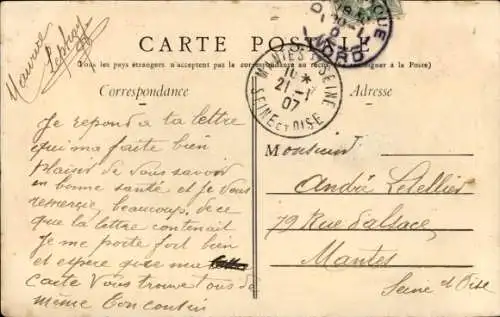 Maurice
CARTE POSTALE
Tous les pays étrangers n'acceptent pas la correspondance au recto (se renseigner à la Poste)
Correspondance
Adresse
MANTES S SEINE
10 *
21 - 1
07
SEINE ET OISE
NORD
Je repond a ta lettre
qui ma faite bien
plaisir de vous savoir
en bonne santé et je vous
remercie beaucoup de ce
que la lettre contenait
Je me porte fort bien
et espere que ma
carte vous trouve tous de
même ton cousin
Monsieur
André Letellier
79 Rue d'alsace
Mantes
Seine et Oise